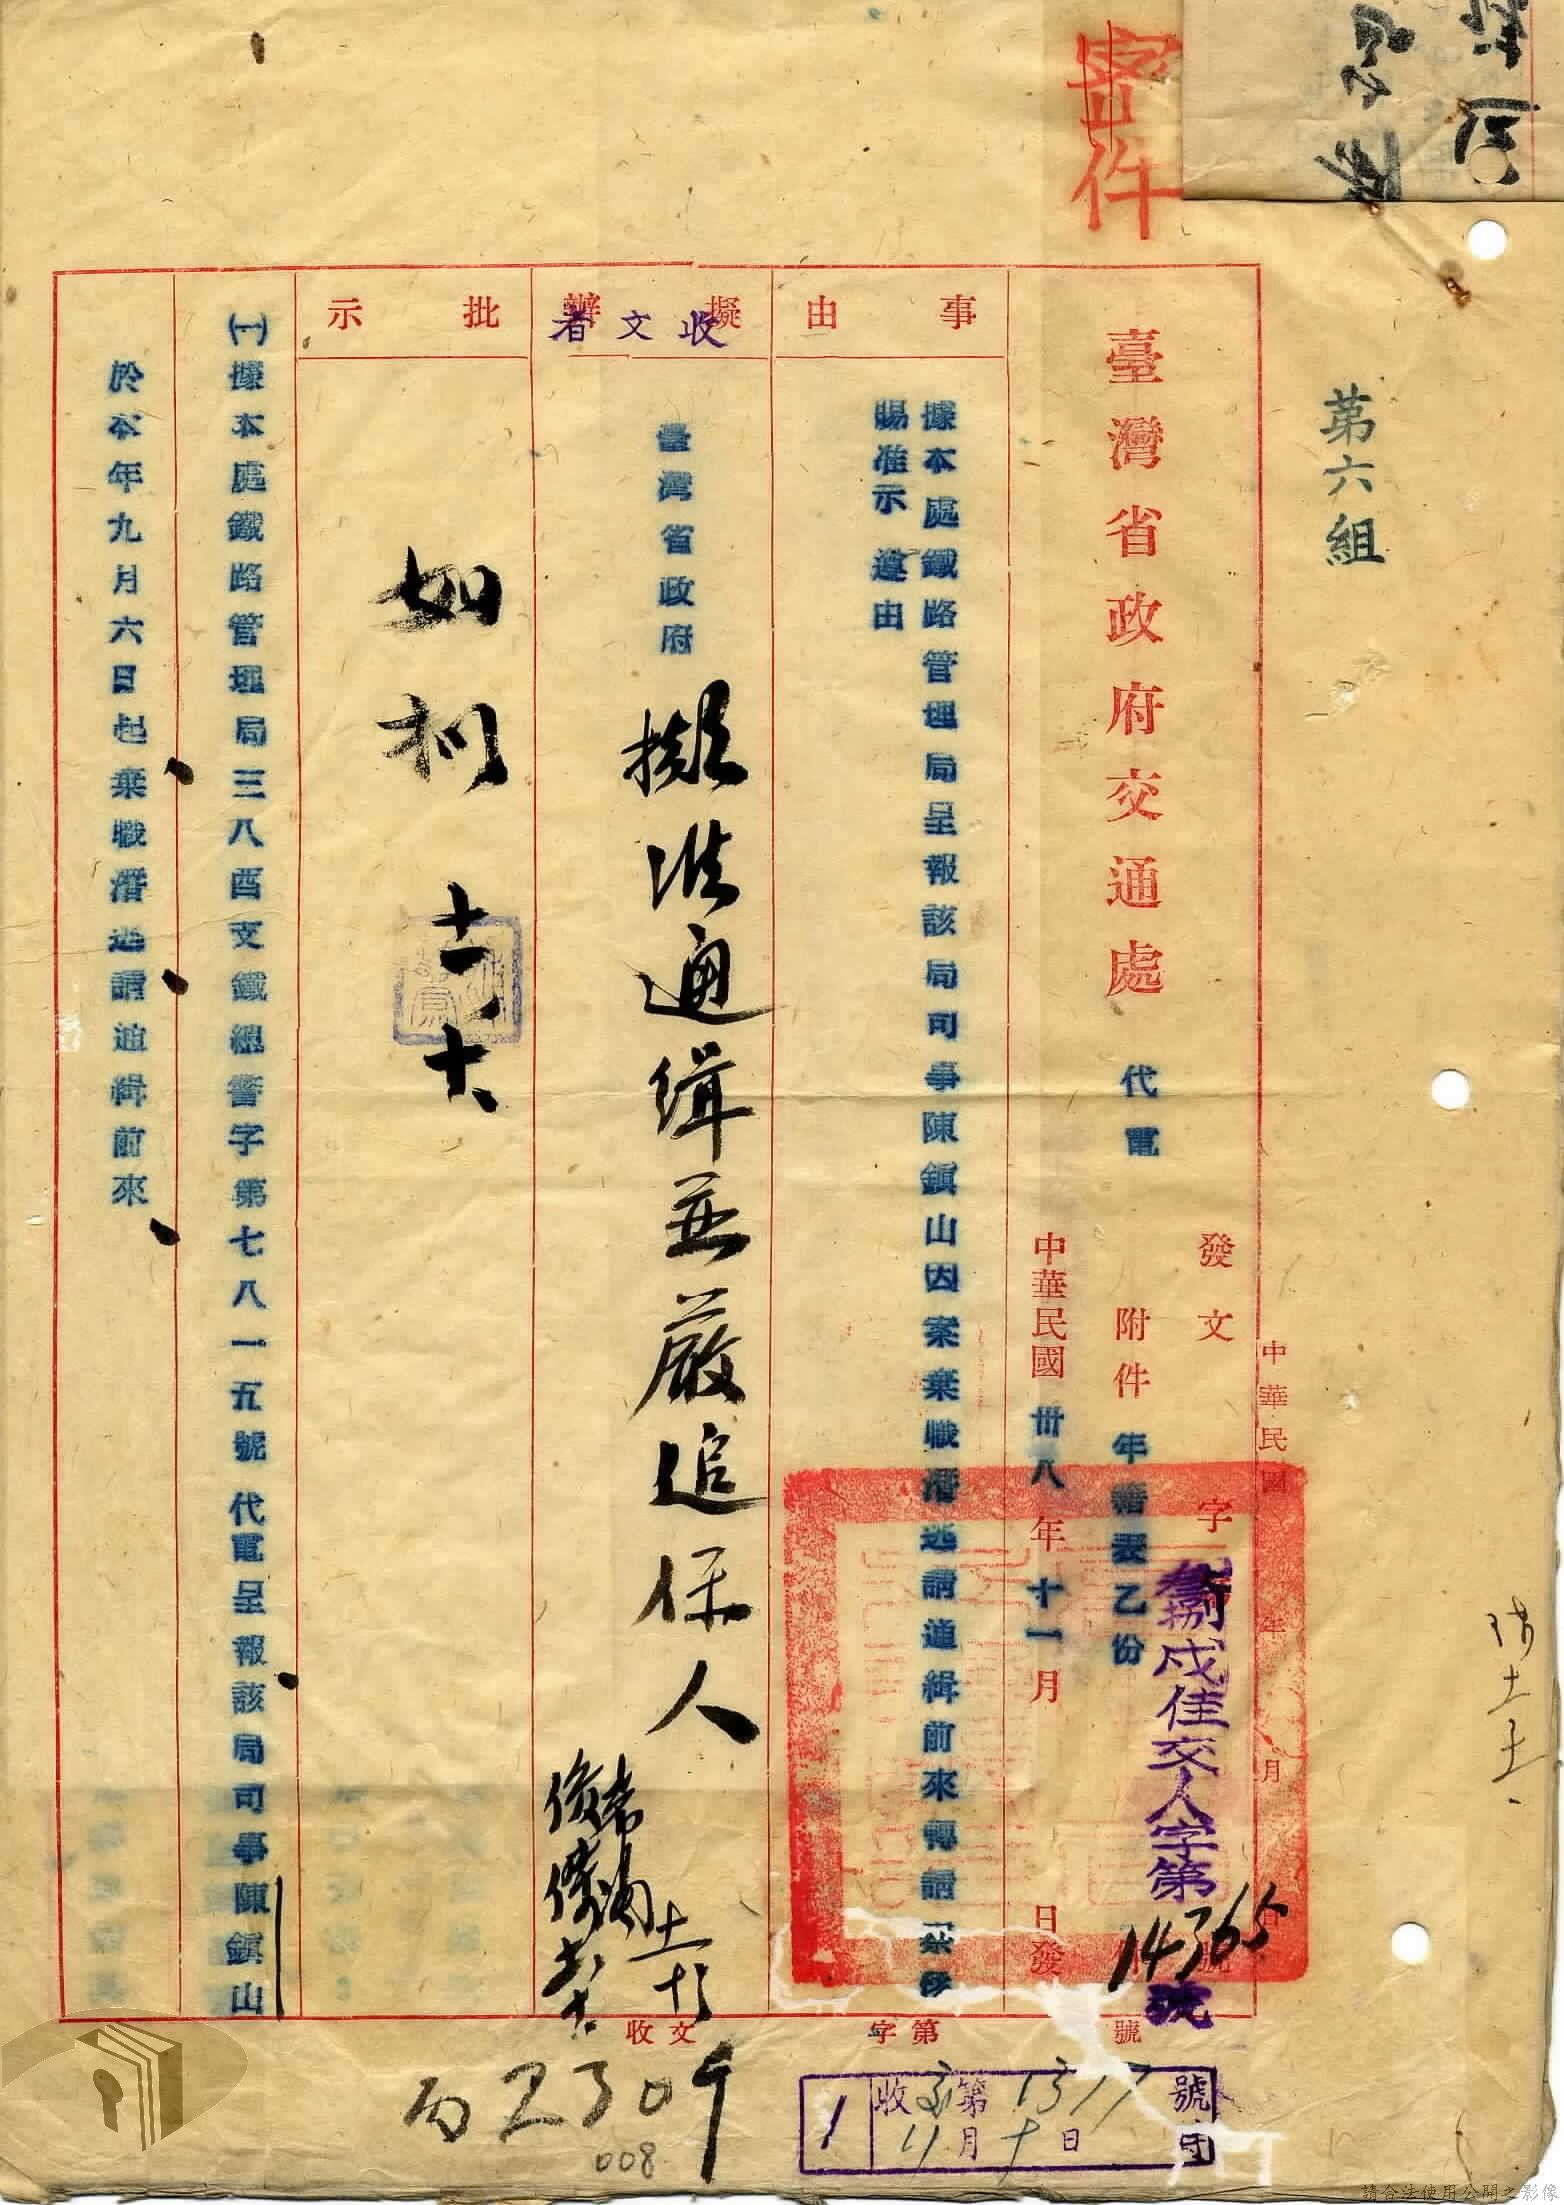 密件
第六組
臺灣省政府交通處
代電
發文
字
號
叁捌戌佳交人字第14365號
附件
年籍表乙份
中華民國卅八年十一月
日發
中華民國
年
月
事由
據本處鐵路管理局呈報該局司事陳鎮山因案棄職潛逃請通緝前來轉請察核
賜准示遵由
擬辦
收文者
臺灣省政府
擬准通緝並嚴追保人
批示
如擬
十一
十
(一)據本處鐵路管理局三八酉支鐵總警字第七八一五號代電呈報該局司事陳鎮山
於本年九月六日起棄職潛逃請通緝前來
收文
字第
號
1
收
第1317號
11月十日
2309
008
請合法使用公開之影像